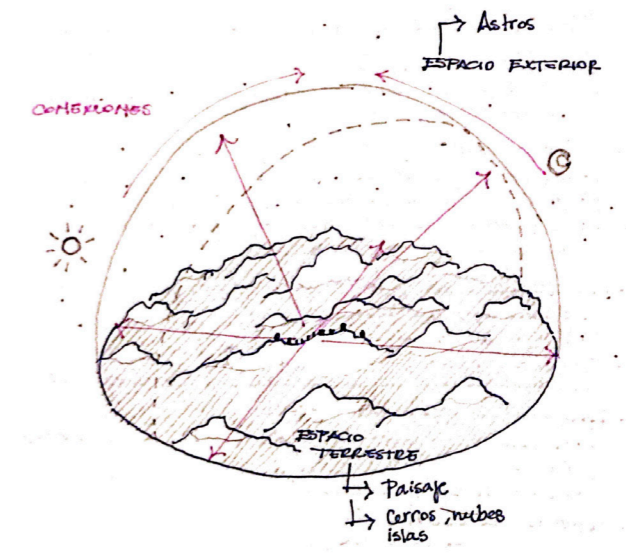 → Astros
ESPACIO EXTERIOR
CONEXIONES
ESPACIO
TERRESTRE
→ Paisaje
→ Cerros, nubes
islas